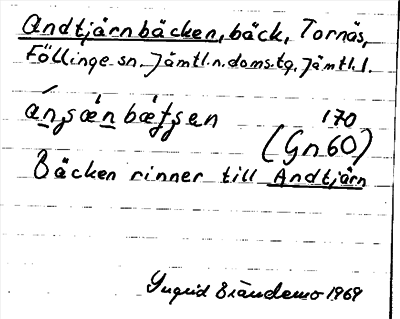 Andtjärnbäcken, bäck, Tornäs,
Föllinge sn. Jämtl.n.doms.tg. Jämtl.l.
ánʒæ̀n bǽtʃen 170
(Gn 60)
Bäcken rinner till Andtjärn
Ingrid 1969